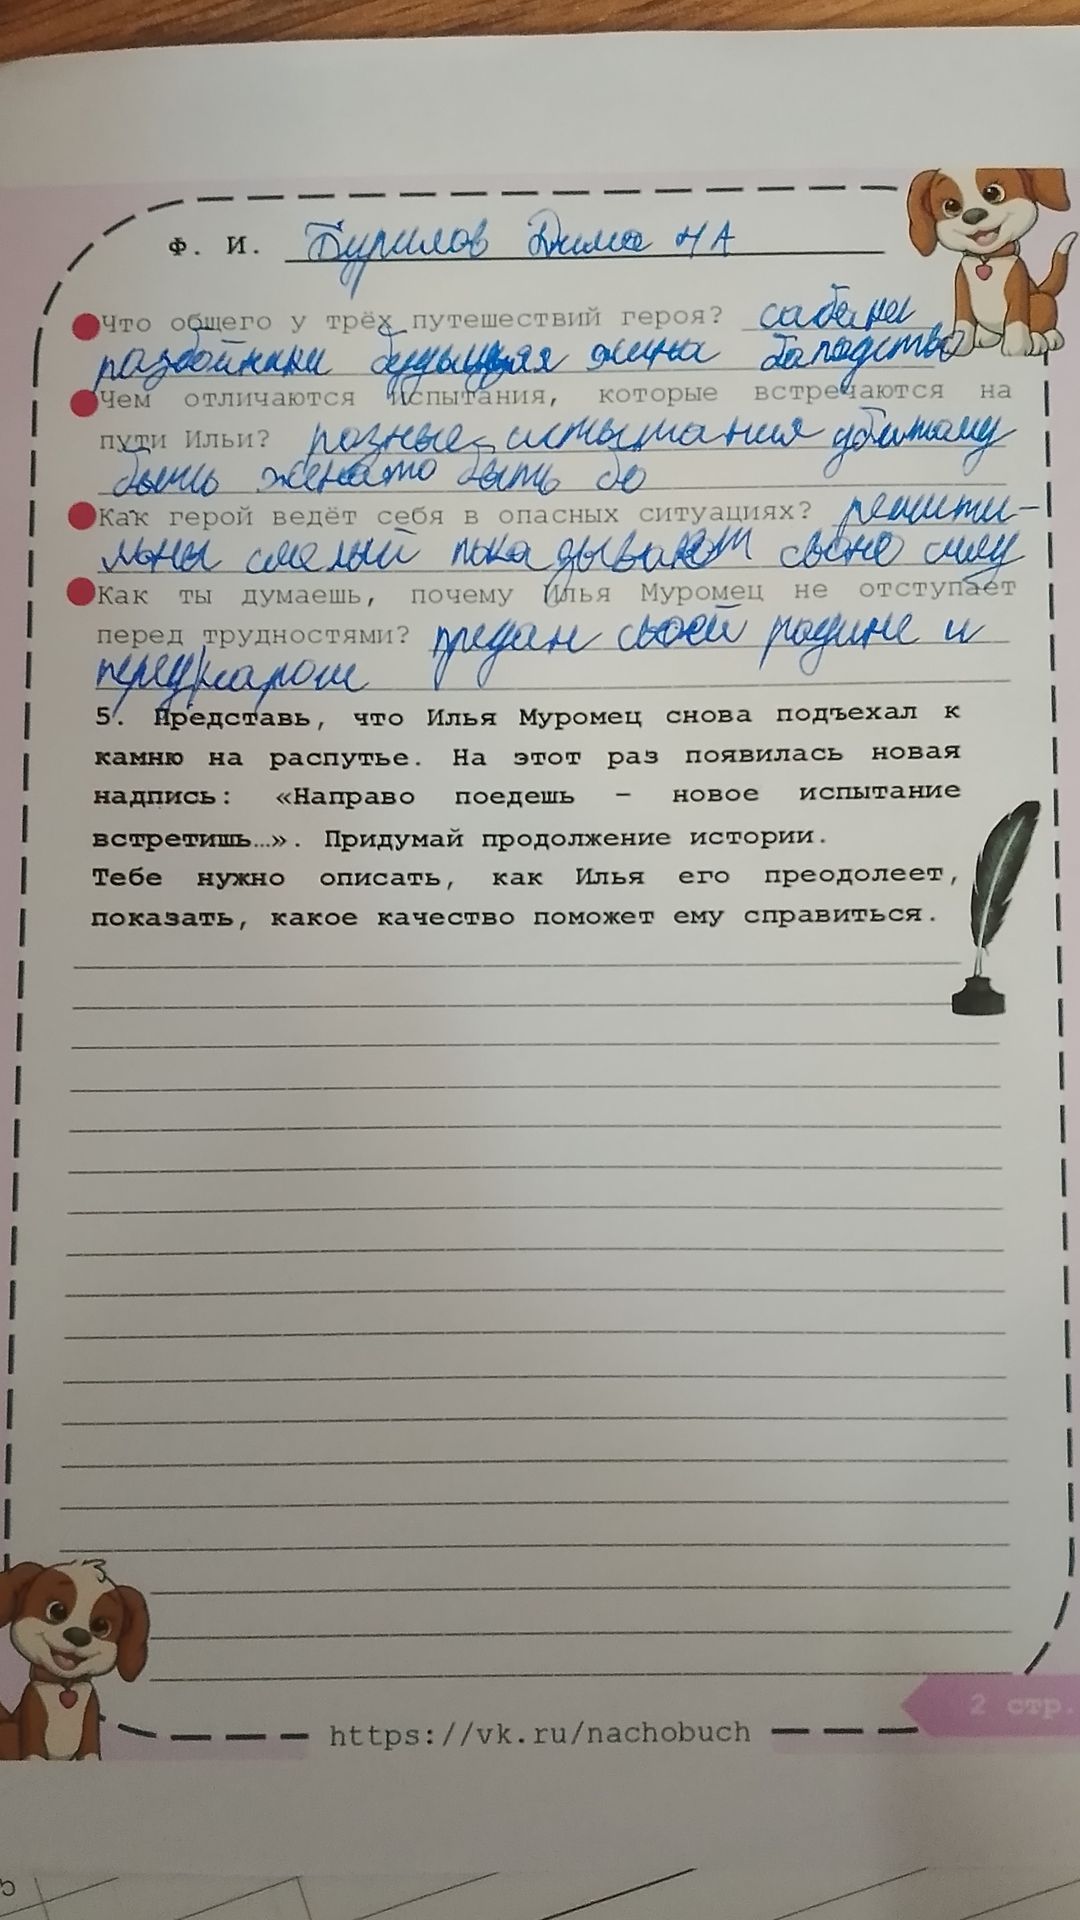 Ф. И. Бурилов Дима 4А
Что общего у трёх путешествий героя?
разбойники будующая жена богадство
Чем отличаются испытания, которые встречаются на
пути Ильи? разные испытания убитому
быть женато быть бо
Как герой ведёт себя в опасных ситуациях? решити-
льны смелый показывает свою силу
Как ты думаешь, почему Илья Муромец не отступает
перед трудностями? предан своей родине и
5. Представь, что Илья Муромец снова подъехал к
камню на распутье. На этот раз появилась новая
надпись: «Направо поедешь – новое испытание
встретишь…». Придумай продолжение истории.
Тебе нужно описать, как Илья его преодолеет,
показать, какое качество поможет ему справиться.
2 стр.
https://vk.ru/nachobuch